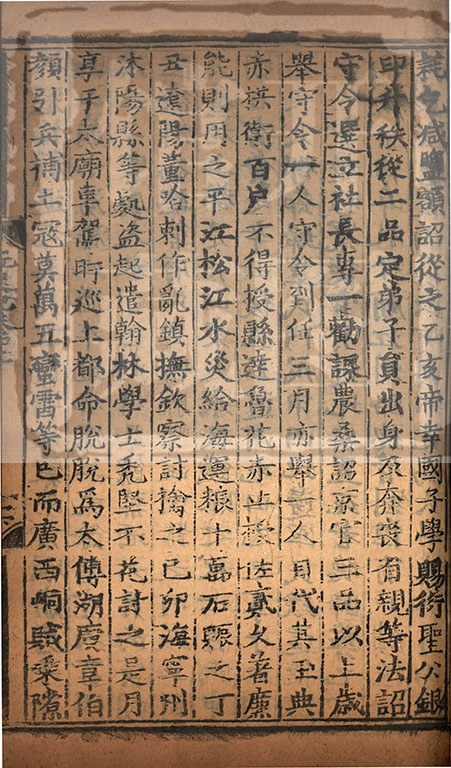 耗乞減鹽額詔從之乙亥帝幸國子學賜衍聖公銀
印升秩從二品定弟子員出身及奔喪省親等法詔
守令選立社長專一勸課農桑詔京官三品以上歲
舉守令一人守令到任三月亦舉一人自代其玉典
赤祺衛百户不得授縣達魯花赤止授佐貳久著廉
能則用之平江松江水災給海運粮十萬石賑之丁
丑遼陽董哈剌作亂鎮撫欽察討擒之已卯海寧州
沭陽縣等處盗起遣翰林學士禿堅不花討之是月
享于太廟車駕時巡上都命脫脫爲太傅湖廣章伯
顏引兵捕土寇莫萬五蠻雷等已而廣西峒賊乘隙